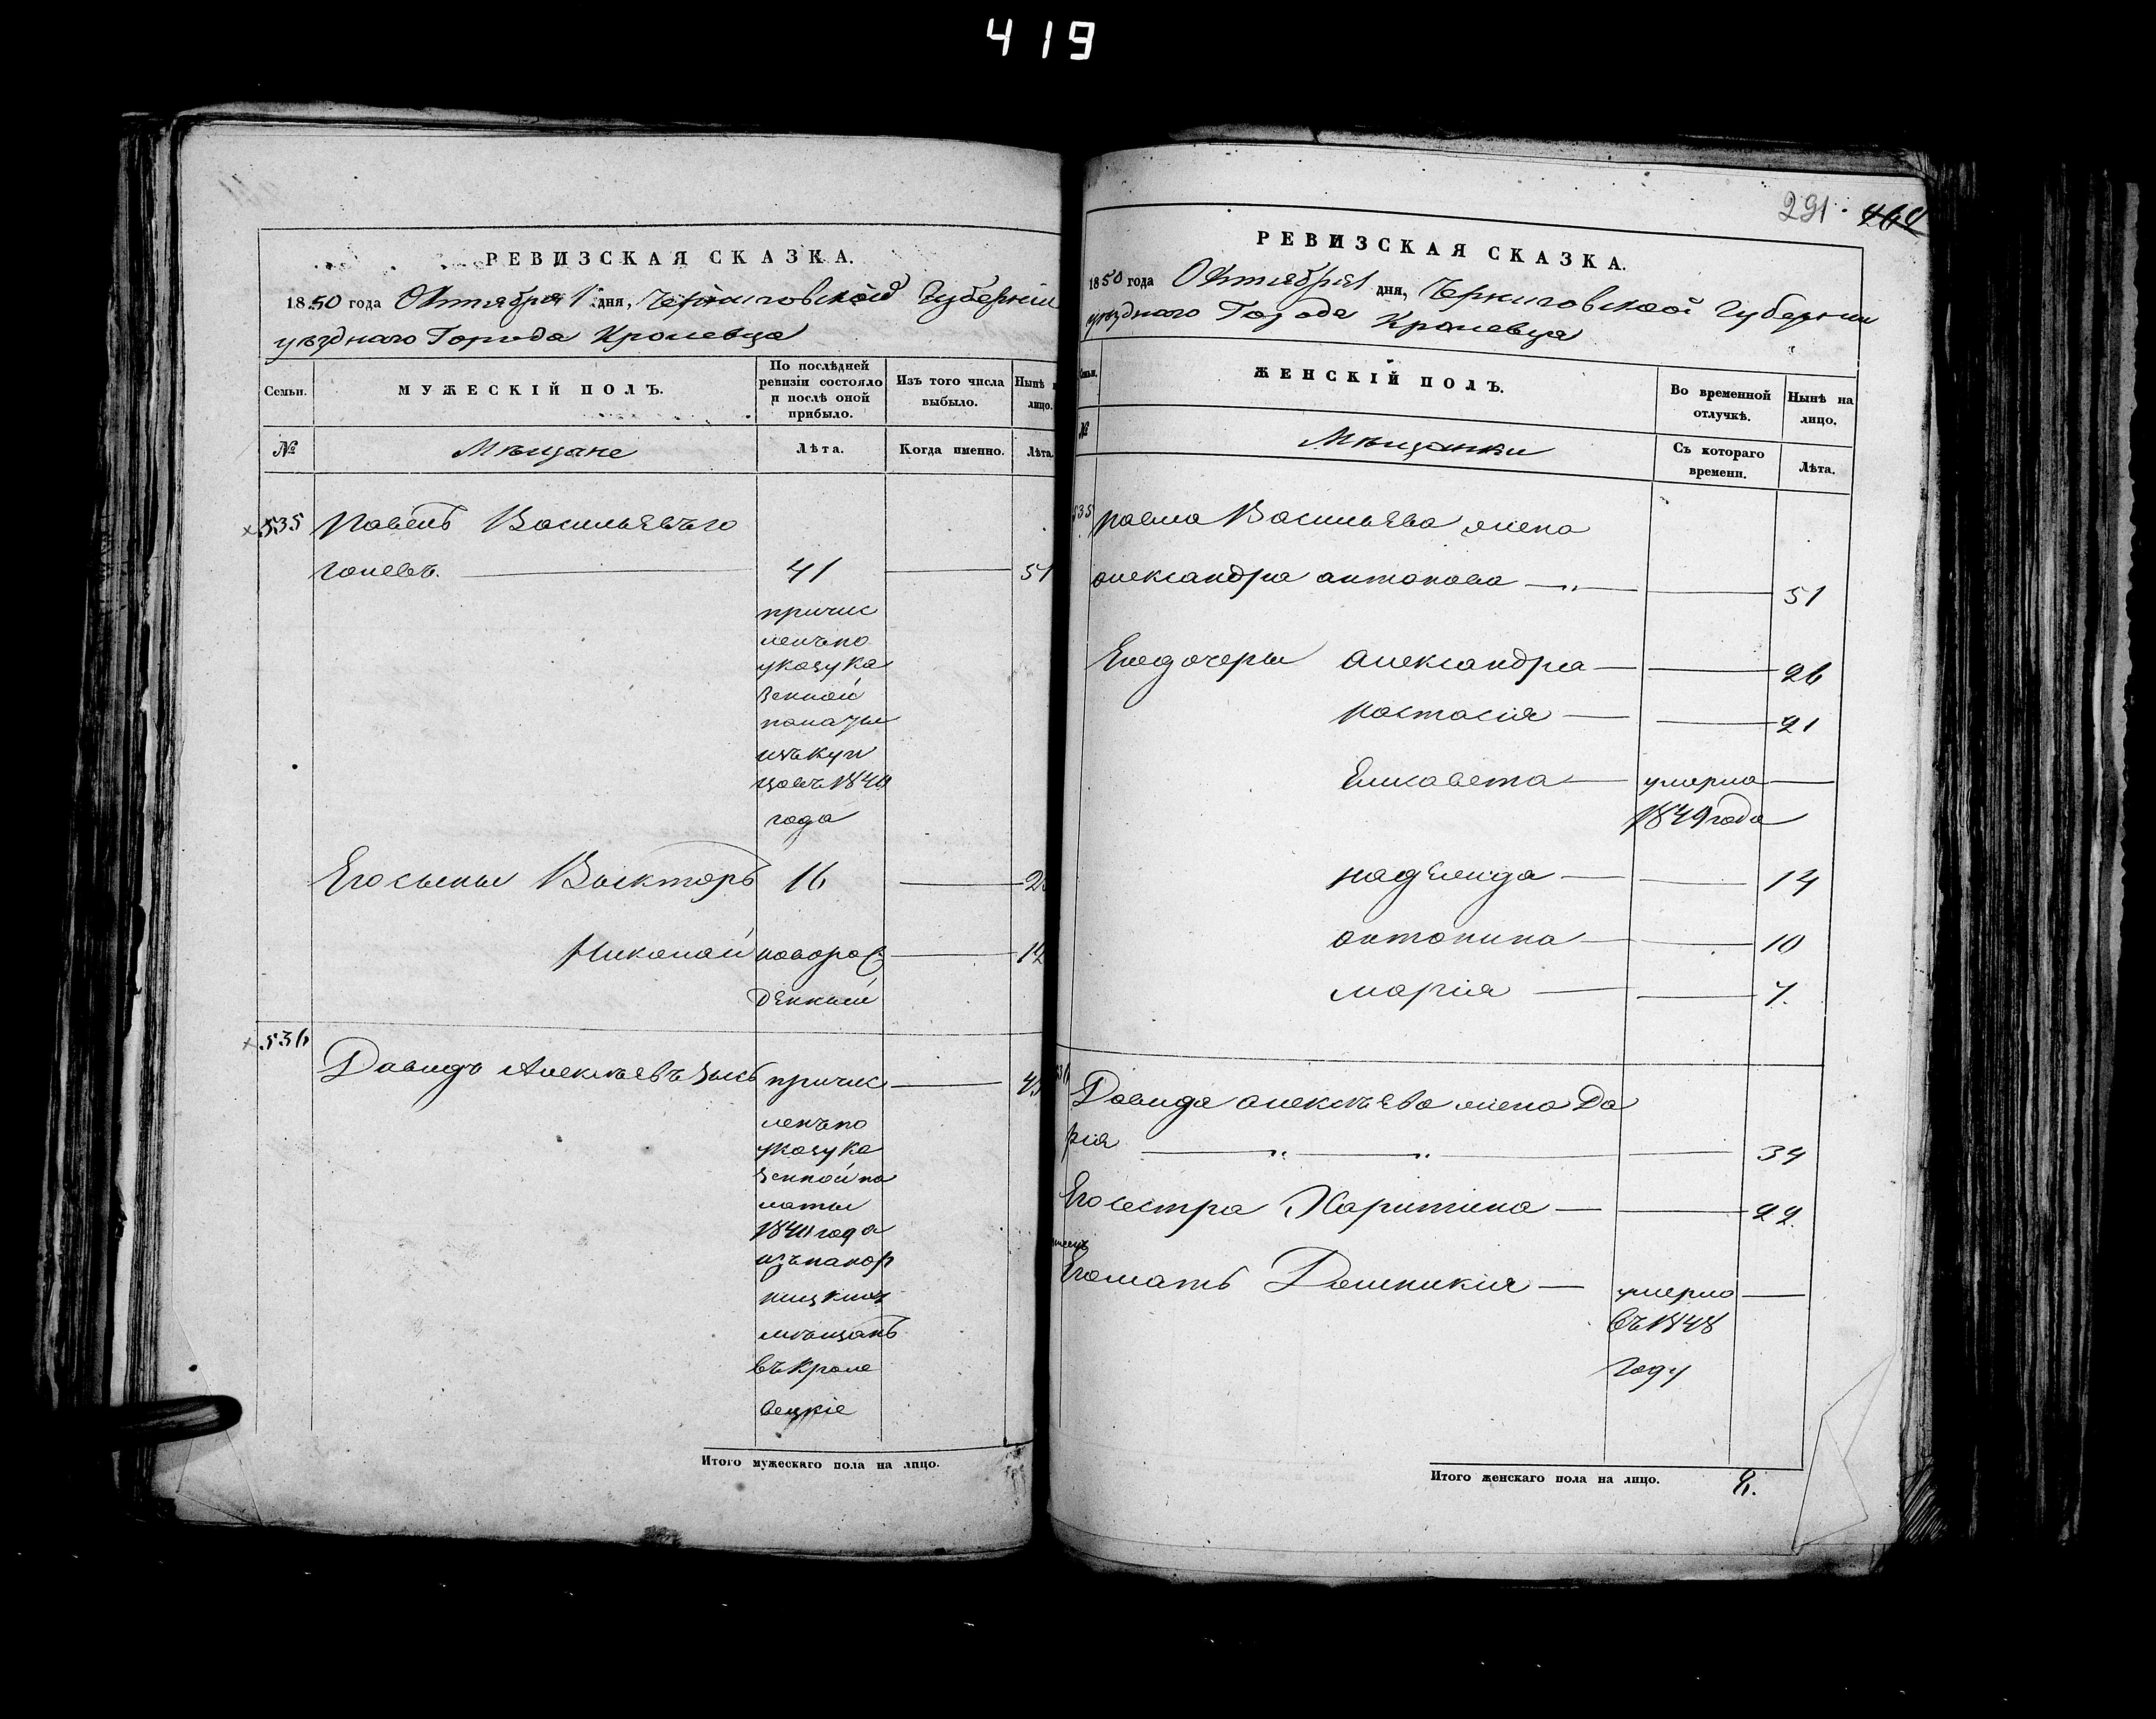 419
РЕВИЗСКАЯ СКАЗКА.
1850 года Октября 1 дня, Черниговской Губернии
уѣзднаго Города Кролевца
Семьи.
МУЖЕСКІЙ ПОЛЪ.
По послѣдней
ревизіи состояло
и послѣ оной
прибыло.
Изъ того числа
выбыло.
Нынѣ
лицо.
№
Мѣщане
Лѣта.
Когда именно.
Лѣта.
535 Павелъ Васильевъ
41 51
причис
ленъ по
указу ка
зенной
палаты
изъ куп
цовъ 1840
года
Его сыны Викторъ 16
Николай новорож
денный
536
Давидъ Алексѣевъ причис
ленъ по
указу ка
зенной па
латы
1840 года
мѣщанъ
въ кроле
вецкіе
Итого мужескаго пола на лицо.
291. 464
РЕВИЗСКАЯ СКАЗКА.
1850 года Октября 1 дня, Черниговской Губернии
уѣзднаго Города Кролевца
Семьи.
ЖЕНСКІЙ ПОЛЪ.
Во временной
отлучкѣ.
Нынѣ на
лицо.
№
Мѣщанки
Съ котораго
времени.
Лѣта.
535 Павла Васильева жена
александра антонова 51
Его дочеры александра 26
Настасія 21
Елисавета умерла
1849 года
надежда 14
антонина 10
марія 7.
536
Давида алексѣева жена Да
рія 34
Его сестра Харитина 22.
Его мать Домникия умерла
въ 1848
году
Итого женскаго пола на лицо. 8.